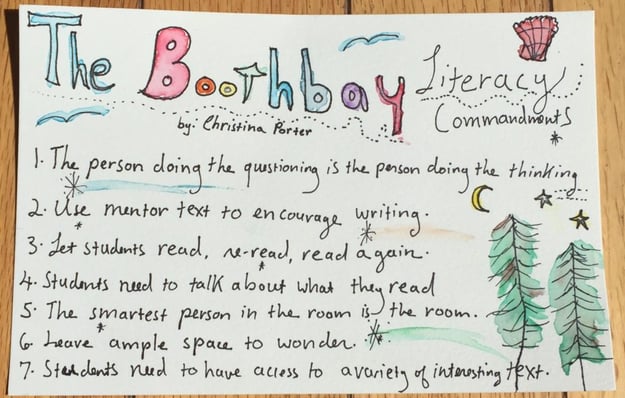 The Boothbay Literacy
Commandments
by: Christina Porter
1. The person doing the questioning is the person doing the thinking
2. Use mentor text to encourage writing.
3. Let students read, re-read, read again.
4. Students need to talk about what they read
5. The smartest person in the room is the room.
6. Leave ample space to wonder.
7. Students need to have access to a variety of interesting text.